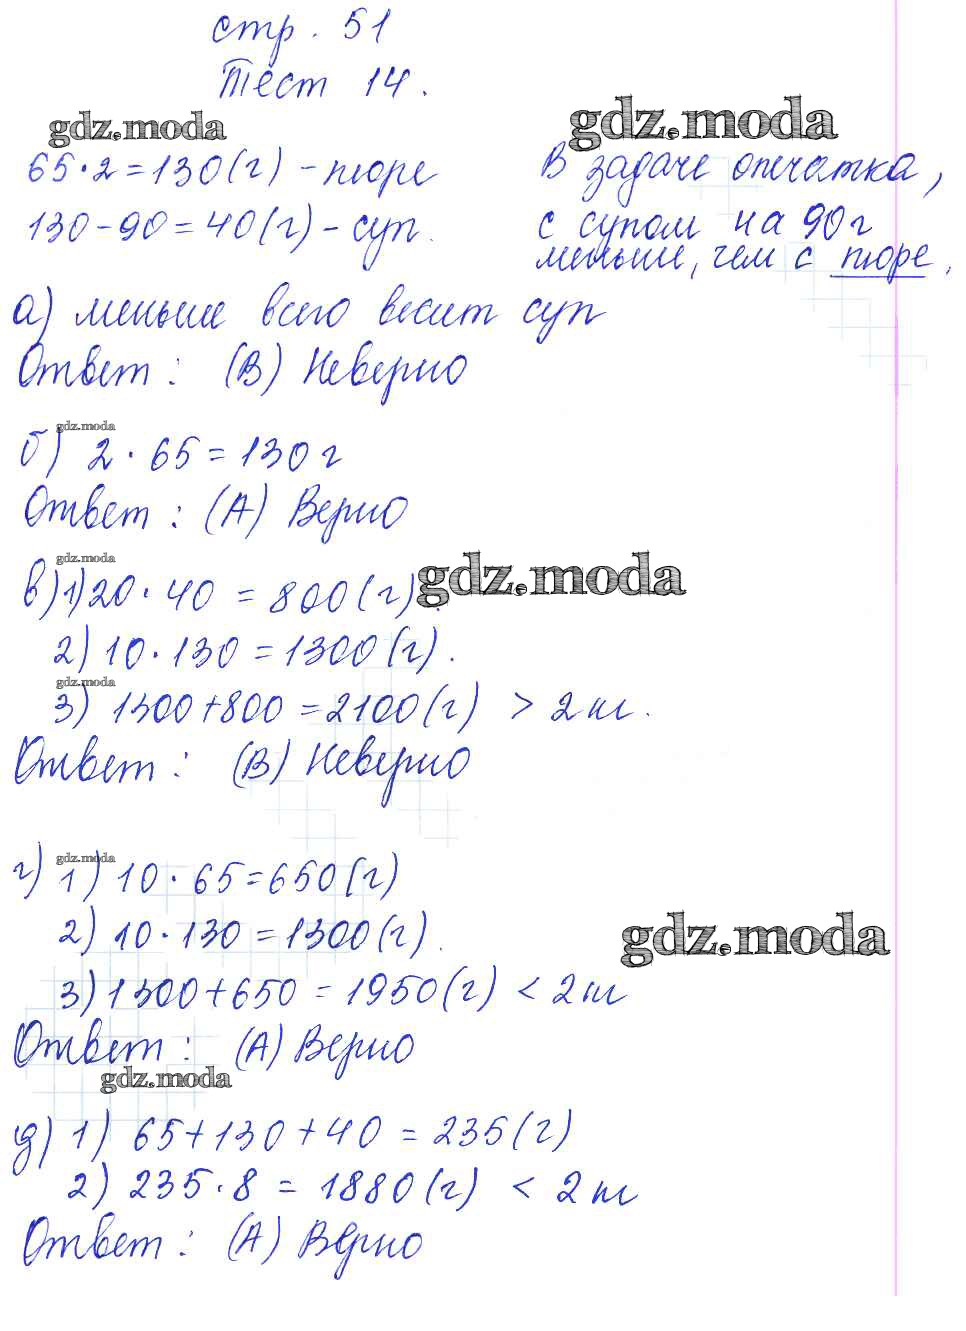 стр. 51
Тест 14.
gdz.moda
gdz.moda
65·2=130(г) - пюре
130-90=40(г) - суп.
В задаче опечатка,
с супом на 90г
меньше, чем с пюре.
а) меньше всего весит суп
Ответ: (В) Неверно
gdz.moda
б) 2·65=130г
Ответ: (А) Верно
gdz.moda
в) 1) 20·40 = 800(г).
gdz.moda
2) 10·130=1300(г).
gdz.moda
3) 1300+800=2100(г) > 2кг.
Ответ: (В) Неверно
gdz.moda
г) 1) 10·65=650(г)
2) 10·130=1300(г).
gdz.moda
3) 1300+650=1950(г) < 2кг
Ответ: (А) Верно
gdz.moda
д) 1) 65+130+40=235(г)
2) 235·8 = 1880(г) < 2кг
Ответ: (А) Верно